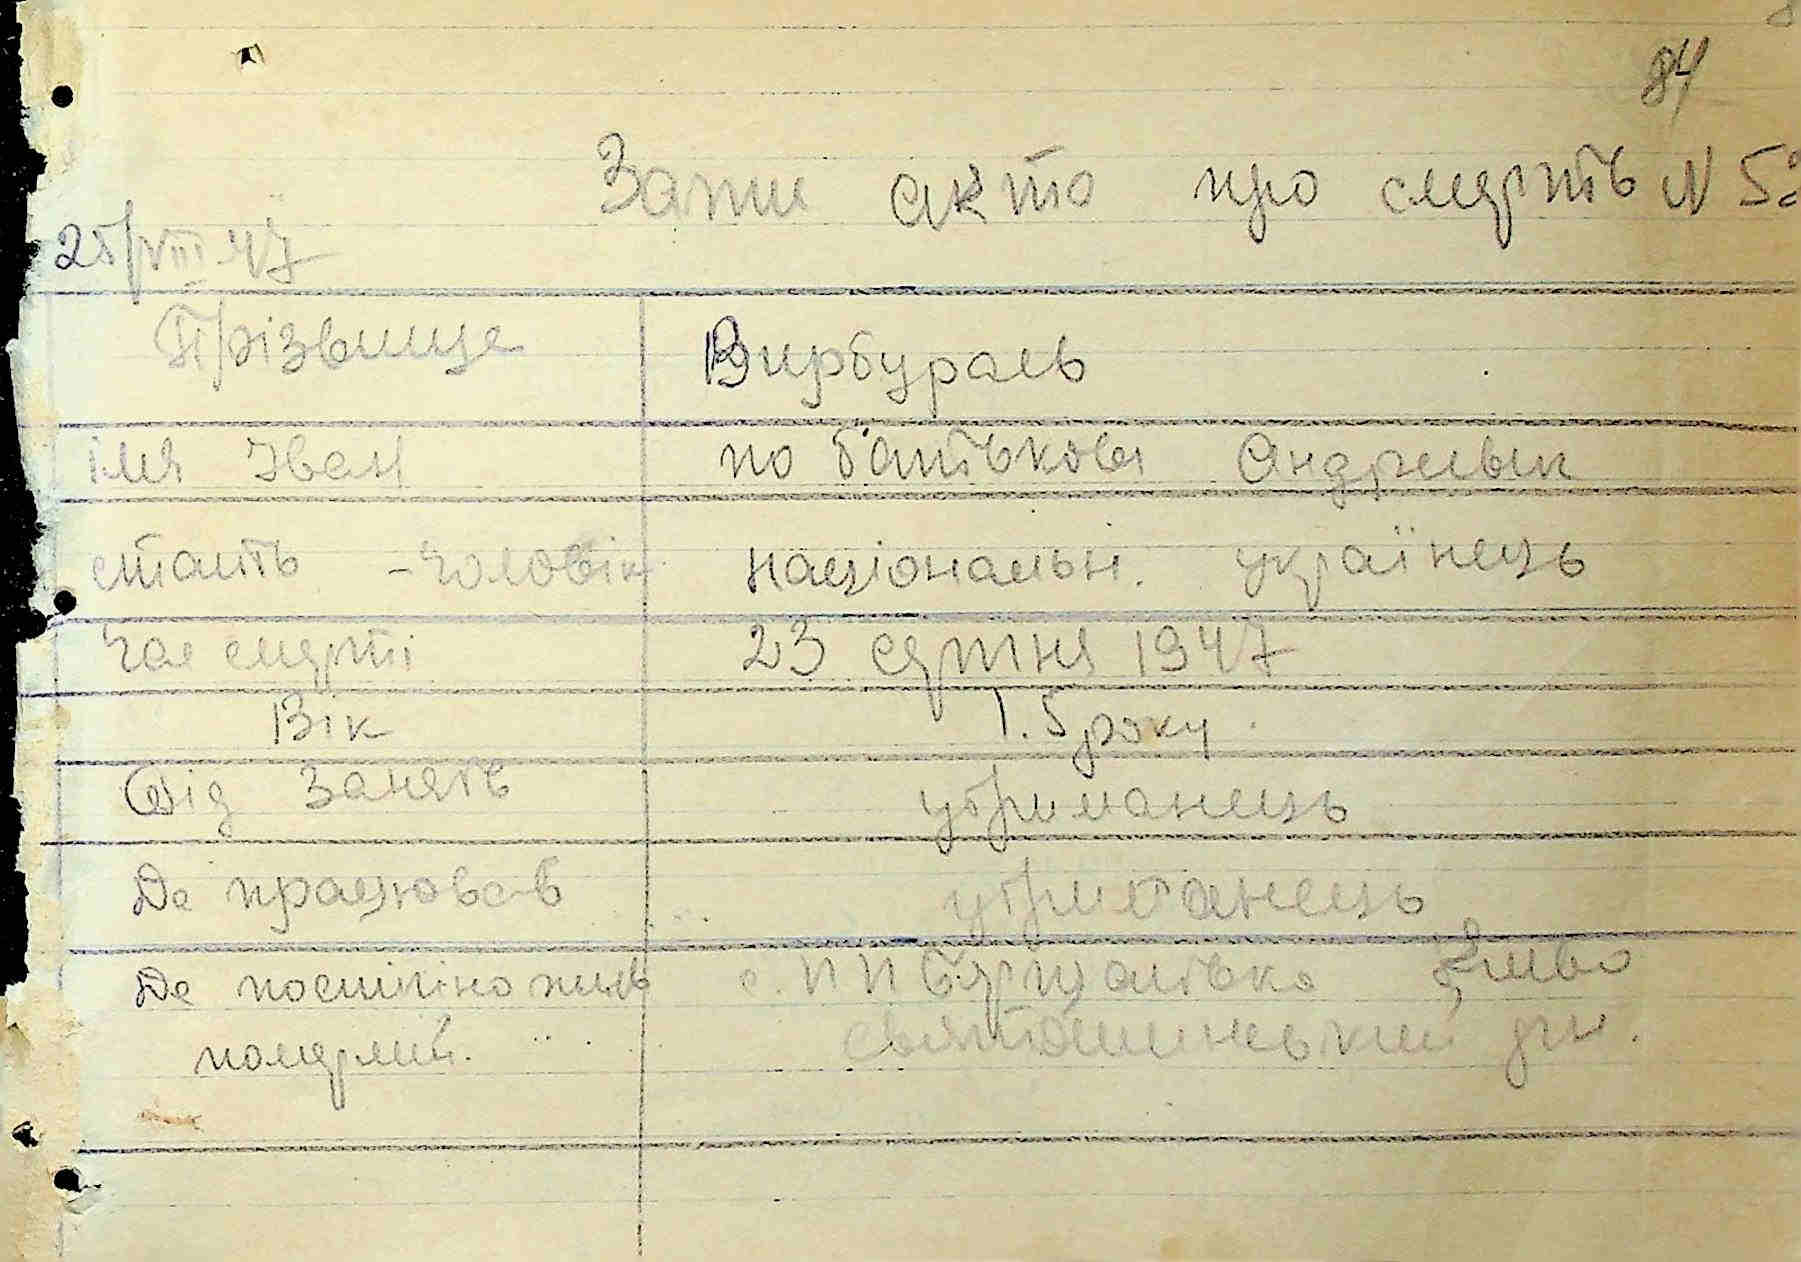 84
Запис акта про смерть N 5
25/VIII 47
Прізвище Вирбураєв
імя Іван по батькові Андрієвич
стать - чоловік національн. українець
час смерті 23 серпня 1947
Вік 1.5 року
Від занять утриманець
Де працював утриманець
Де постійно жив с. П П Борщагівка
померлий. Святошинський рн.